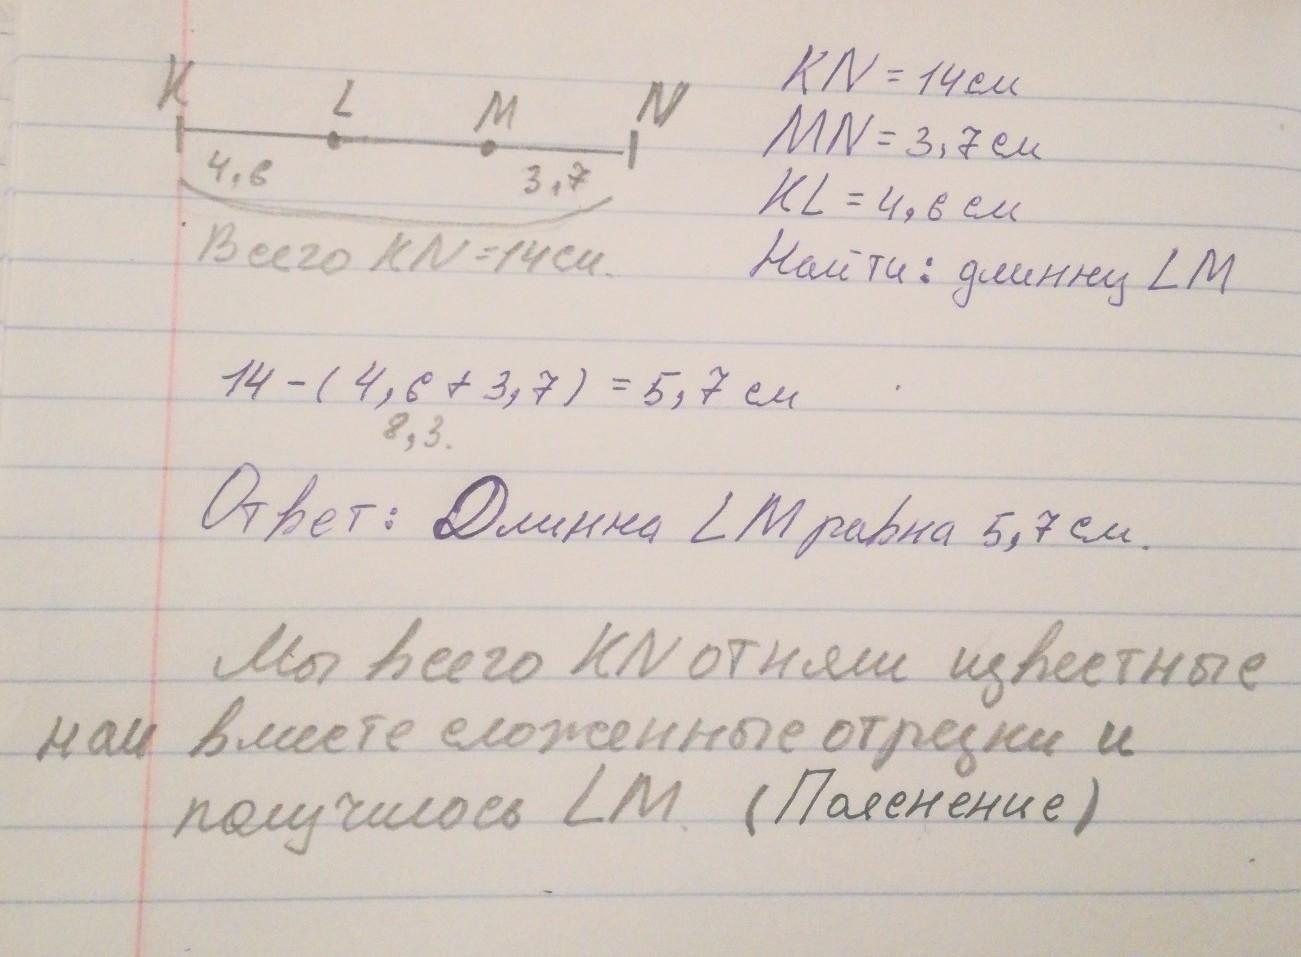 K L M N
4,6 3,7
Всего KN=14см.
KN = 14см
MN = 3,7см
KL = 4,6 см
Найти: длинну LM
14 - ( 4,6 + 3,7 ) = 5,7 см
8,3.
Ответ: Длинна LM равна 5,7 см.
Мы всего KN отняли известные
нам вместе сложенные отрезки и
получилось LM. (Пояснение)